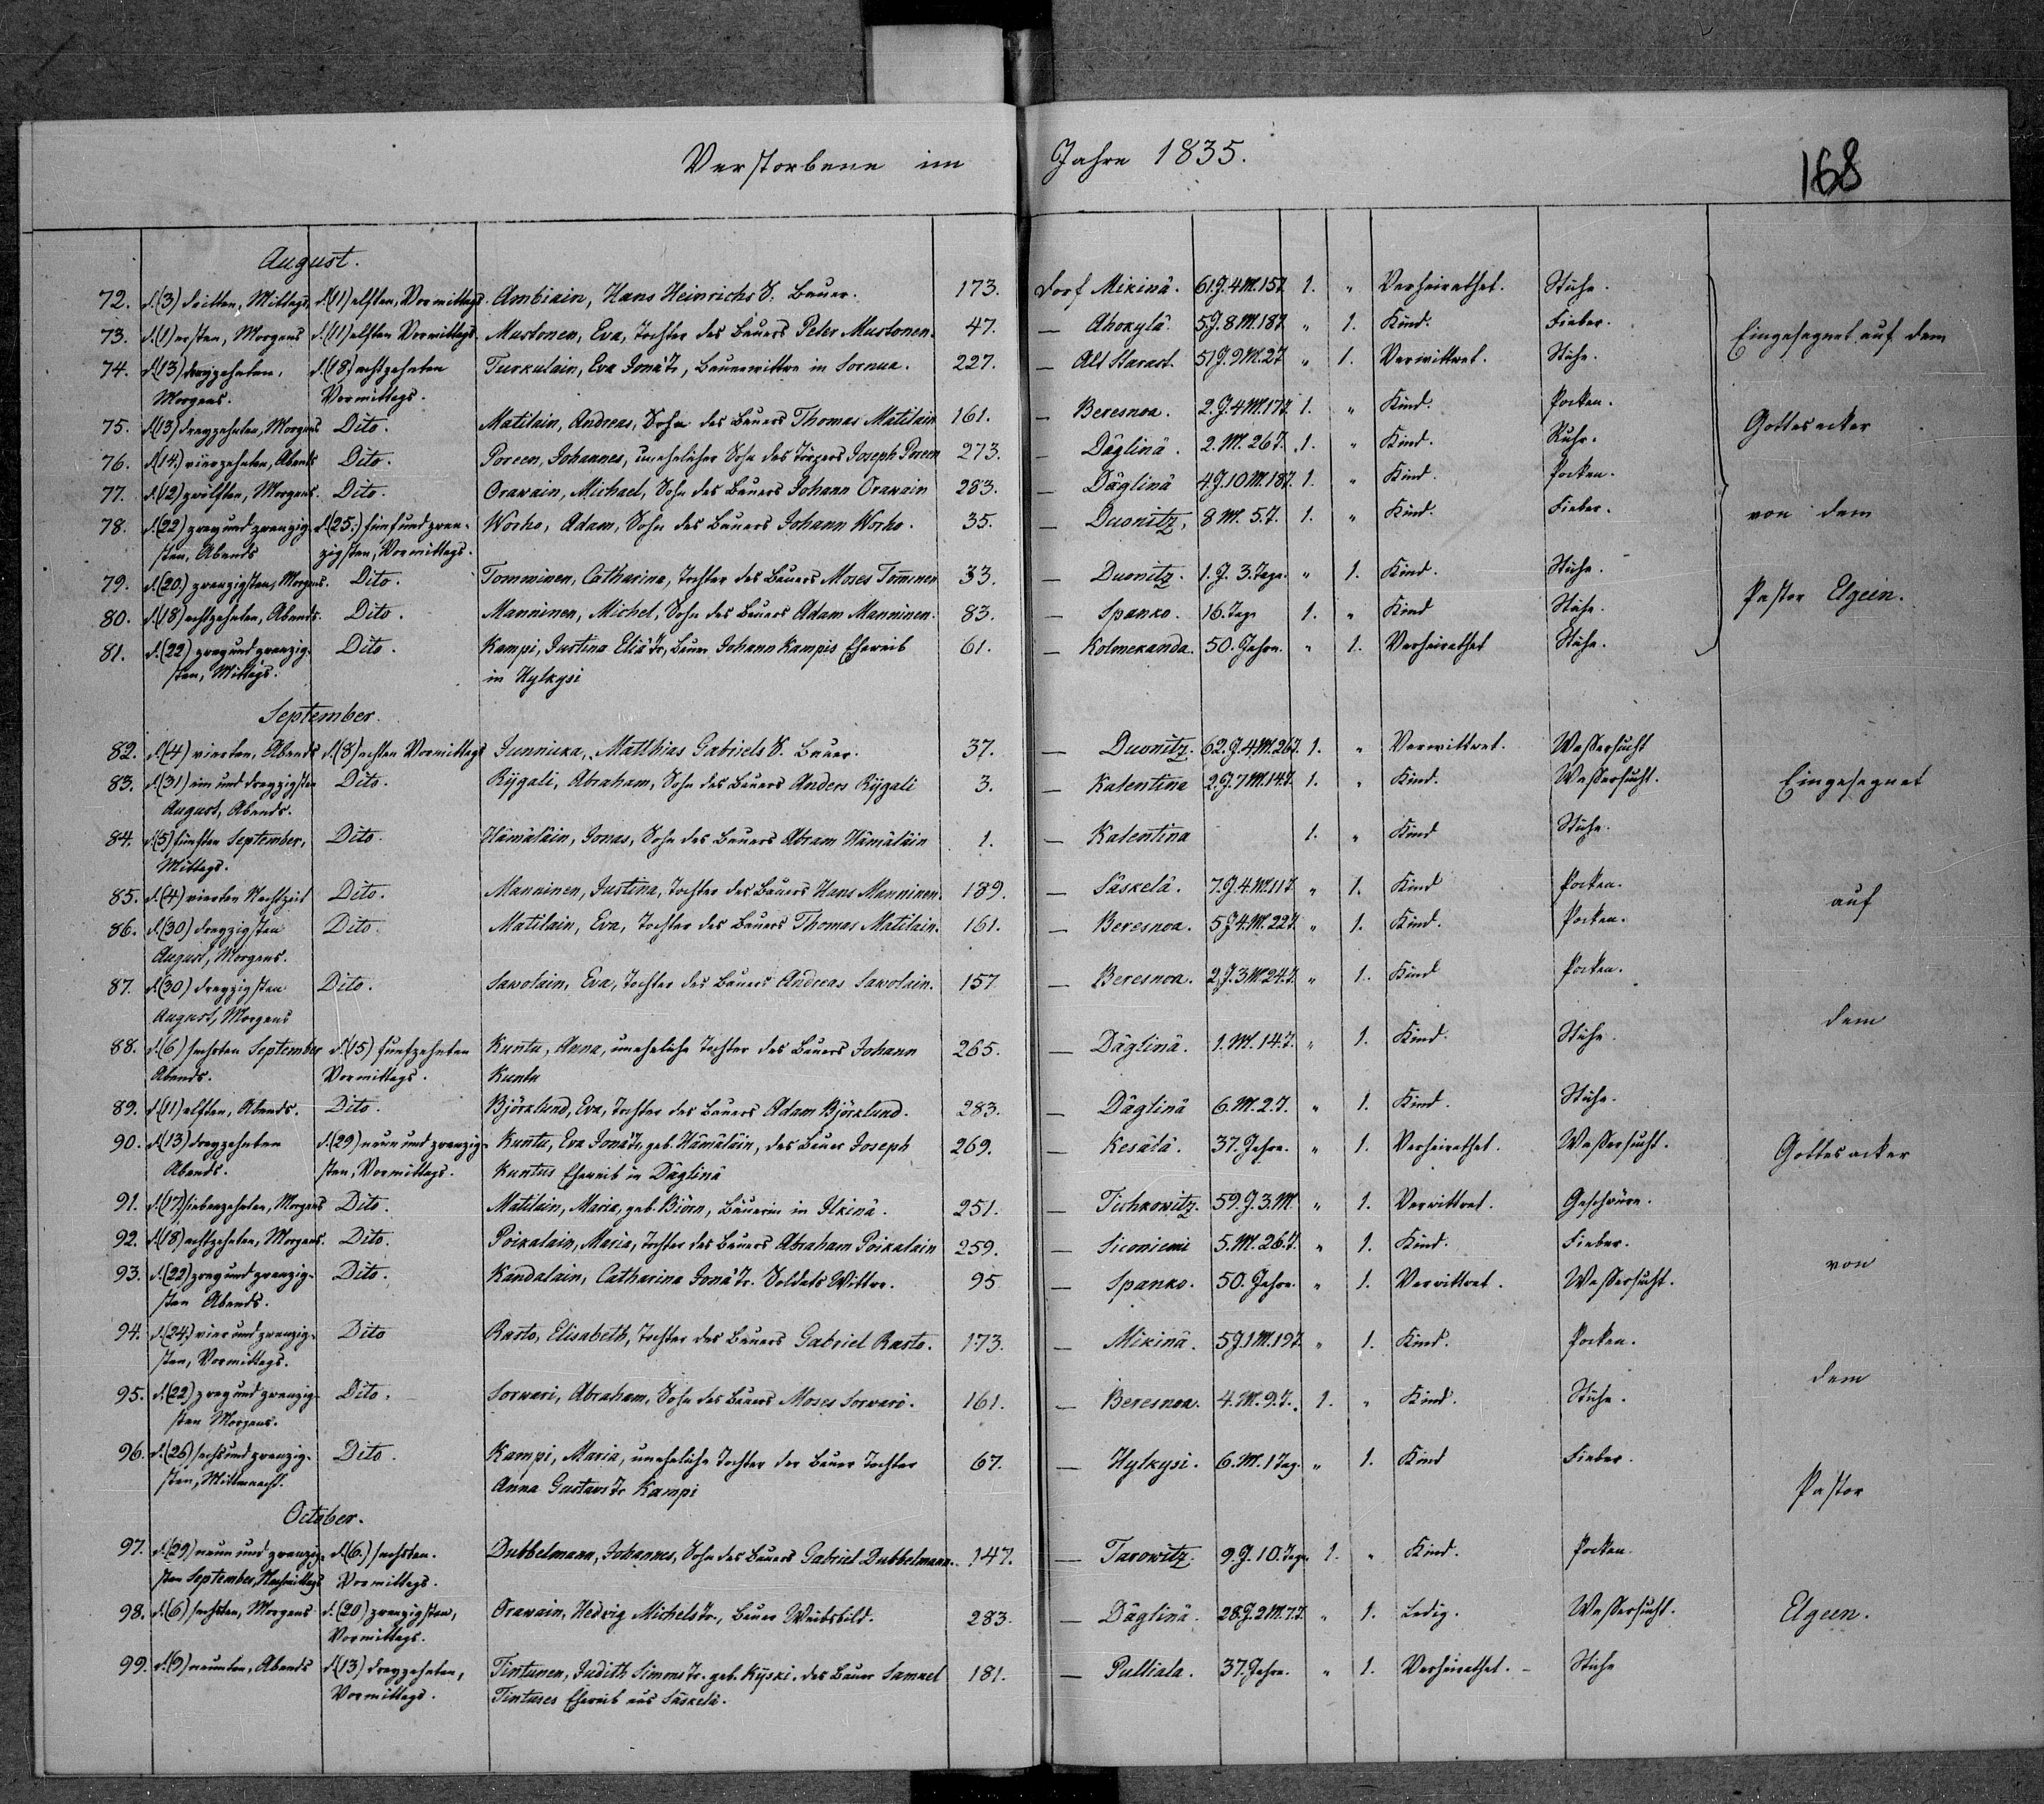 Verstorbene im Jahre 1835.
168
August.
72. d.(3) dritten, Mittags. d.(11) elften, Vormittags. Ambiain, Hans Heinrichs S. Bauer. 173. Dorf Mikinä. 61.J.4M.15T. 1. " Verheirathet. Stiche.
73. d.(1) ersten, Morgens d.(11) elften Vormittags. Mustonen, Eva, Tochter des Bauers Peter Mustonen. 47. — Ahokylä. 5J.8M.18T. " 1. Kind. Fieber.
Eingesegnet auf dem
74. d.(13) dreyzehnten, d.(18) achtzehnten Turkulain, Eva Jonä Tr, Bauerwittwe in Sornua. 227. — Alt Starast. 51J.9M.2T. " 1. Verwittwet. Stiche.
Morgens. Vormittags.
75. d.(13) dreyzehnten, Morgens Dito. Matilain, Andreas, Sohn des Bauers Thomas Matilain 161. — Beresnoa. 2.J.4M.17T. 1. " Kind. Pocken.
Gottesacker
76. d.(14.) vierzehnten, Abends Dito. Poreen, Johannes, unehelicher Sohn des Joseph Poreen 273. — Däglinä. 2.M.26T. 1. " Kind. Ruhr.
77. d.(12) zwölften, Morgens. Dito. Orawain, Michael, Sohn des Bauers Johann Orawain 283. — Däglinä 4J.10M.18T. 1. " Kind. Pocken
78. d.(22) zwey und zwanzig- d.(25.) fünf und zwan- Worho, Adam, Sohn des Bauers Johann Worho. 35. — Duonitz, 8M. 5.T. 1. " Kind. Fieber.
von dem
sten, Abends zigsten, Vormittags.
79. d.(20.) zwanzigsten, Morgens. Dito. Tomminen, Catharina, Tochter des Bauers Moses Tom̄inen 33. — Duonitz. 1.J. 3.Tage. " 1. Kind. Stiche.
80. d.(18) achtzehnten, Abends. Dito. Manninen, Michel, Sohn des Bauers Adam Manninen. 83. — Spanko. 16.Tage 1. " Kind Stiche.
Pastor Elgeen.
81. d.(22) zwey und zwanzig- Dito. Kampi, Justina Eliä Tr, Bauer Johann Kampis Eheweib 61. — Kolmekanda. 50. Jahre. " 1. Verheirathet Stiche.
sten, Mittags. in Hylkysi
September.
82. d.(4) vierten, Abends d.(8) achten Vormittags Junnicka, Matthias Gabriels S. Bauer. 37. — Duonitz. 62.J.4M.26T. 1. " Verwittwet. Waßersucht
83. d.(31) ein und dreyzigsten Dito. Rÿgali, Abraham, Sohn des Bauers Anders Rÿgali 3. — Kalentina 2.J.7M.14T. 1. " Kind. Waßersucht.
Eingesegnet
August, Abends.
84. d.(5) fünften September, Dito. Hämäläin, Jonas, Sohn des Bauers Abram Hämäläin 1. — Kalentina 1. " Kind Stiche.
Mittags.
85. d.(4) vierten Nachtzeit Dito. Manninen, Justina, Tochter des Bauers Hans Manninen. 189. — Säskelä. 7.J.4.M.11T. " 1. Kind Pocken.
auf
86. d.(30) dreyzigsten Dito. Matilain, Eva, Tochter des Bauers Thomas Matilain. 161. — Beresnoa. 5J4.M.22T. " 1. Kind. Pocken.
August, Morgens.
87. d.(30) dreyzigsten Dito. Sawolain, Eva, Tochter des Bauers Andreas Sawolain. 157. — Beresnoa. 2.J.3M.24.T. " 1. Kind Pocken.
August, Morgens
dem
88. d.(6) sechsten September d.(15) funfzehnten Kuntu, Anna, uneheliche Tochter des Bauers Johann 265. — Däglinä. 1.M.14.T. " 1. Kind. Stiche.
Abends. Vormittags. Kuntu
89. d.(11) elften, Abends. Dito. Björklund, Eva, Tochter des Bauers Adam Björklund. 283. — Däglinä 6.M.2.T. " 1. Kind. Stiche.
90. d.(13) dreyzehnten d.(29) neun und zwanzig- Kuntu, Eva Jonä Tr, geb. Hämäläin, des Bauer Joseph 269. — Kesälä. 37. Jahre. " 1. Verheirathet. Waßersucht.
Gottesacker
Abends. sten, Vormittags. Kuntus Eheweib in Däglinä
91. d.(17) siebenzehnten, Morgens Dito. Matilain, Maria, geb. Biörn, Bäuerin in Ilkinä. 251. — Tichkowitz. 59.J.3.M. " 1. Verwittwet. Geschwüre.
92. d.(18) achtzehnten, Morgens. Dito. Poikalain, Maria, Tochter des Bauers Abraham Poikalain 259. — Siconiemi 5.M.26.T. " 1. Kind. Fieber.
von
93. d.(22) zwey und zwanzig- Dito. Kandalain, Catharina Jonä Tr. Soldats Wittwe. 95 — Spanko. 50. Jahre. " 1. Verwittwet. Waßersucht.
sten Abends.
94. d.(24) vier und zwanzig- Dito Rasto, Elisabeth, Tochter des Bauers Gabriel Rasto. 173. — Mikinä. 5J.1M.19T. " 1. Kind. Pocken.
sten, Vormittags.
dem
95. d.(22) zwey und zwanzig- Dito. Sorwari, Abraham, Sohn des Bauers Moses Sorwari. 161. — Beresnoa. 4.M.9.T. 1. " Kind. Stiche.
sten Morgens.
96. d.(26) sechs und zwanzig- Dito. Kampi, Maria, uneheliche Tochter der Bauer Tochter 67. — Hylkysi. 6.M.1Tag. " 1. Kind Fieber.
sten, Mitternacht. Anna Gustavs Tr Kampi
Pastor
October.
97. d.(29) neun und zwanzig- d.(6.) sechsten. Dubbelmann, Johannes, Sohn des Bauers Gabriel Dubbelmann. 147. — Tarowitz. 9.J.10.Tage 1. " Kind. Pocken.
sten September, Nachmittags Vormittags.
98. d.(6) sechsten, Morgens d.(20) zwanzigsten, Orawain, Hedwig Michels Tr., Bauer Weibsbild. 283. — Däglinä. 28.J.2M.7.T. " 1. Ledig. Waßersucht.
Elgeen.
Vormittags.
99. d.(9) neunten, Abends d.(13) dreyzehnten, Tintunen, Judith Simons Tr. geb. Kÿski, des Bauer Samuel 181. — Pulliala. 37. Jahre. " 1. Verheirathet. — Stiche
Vormittags. Tintunes Eheweib aus Säskelä.